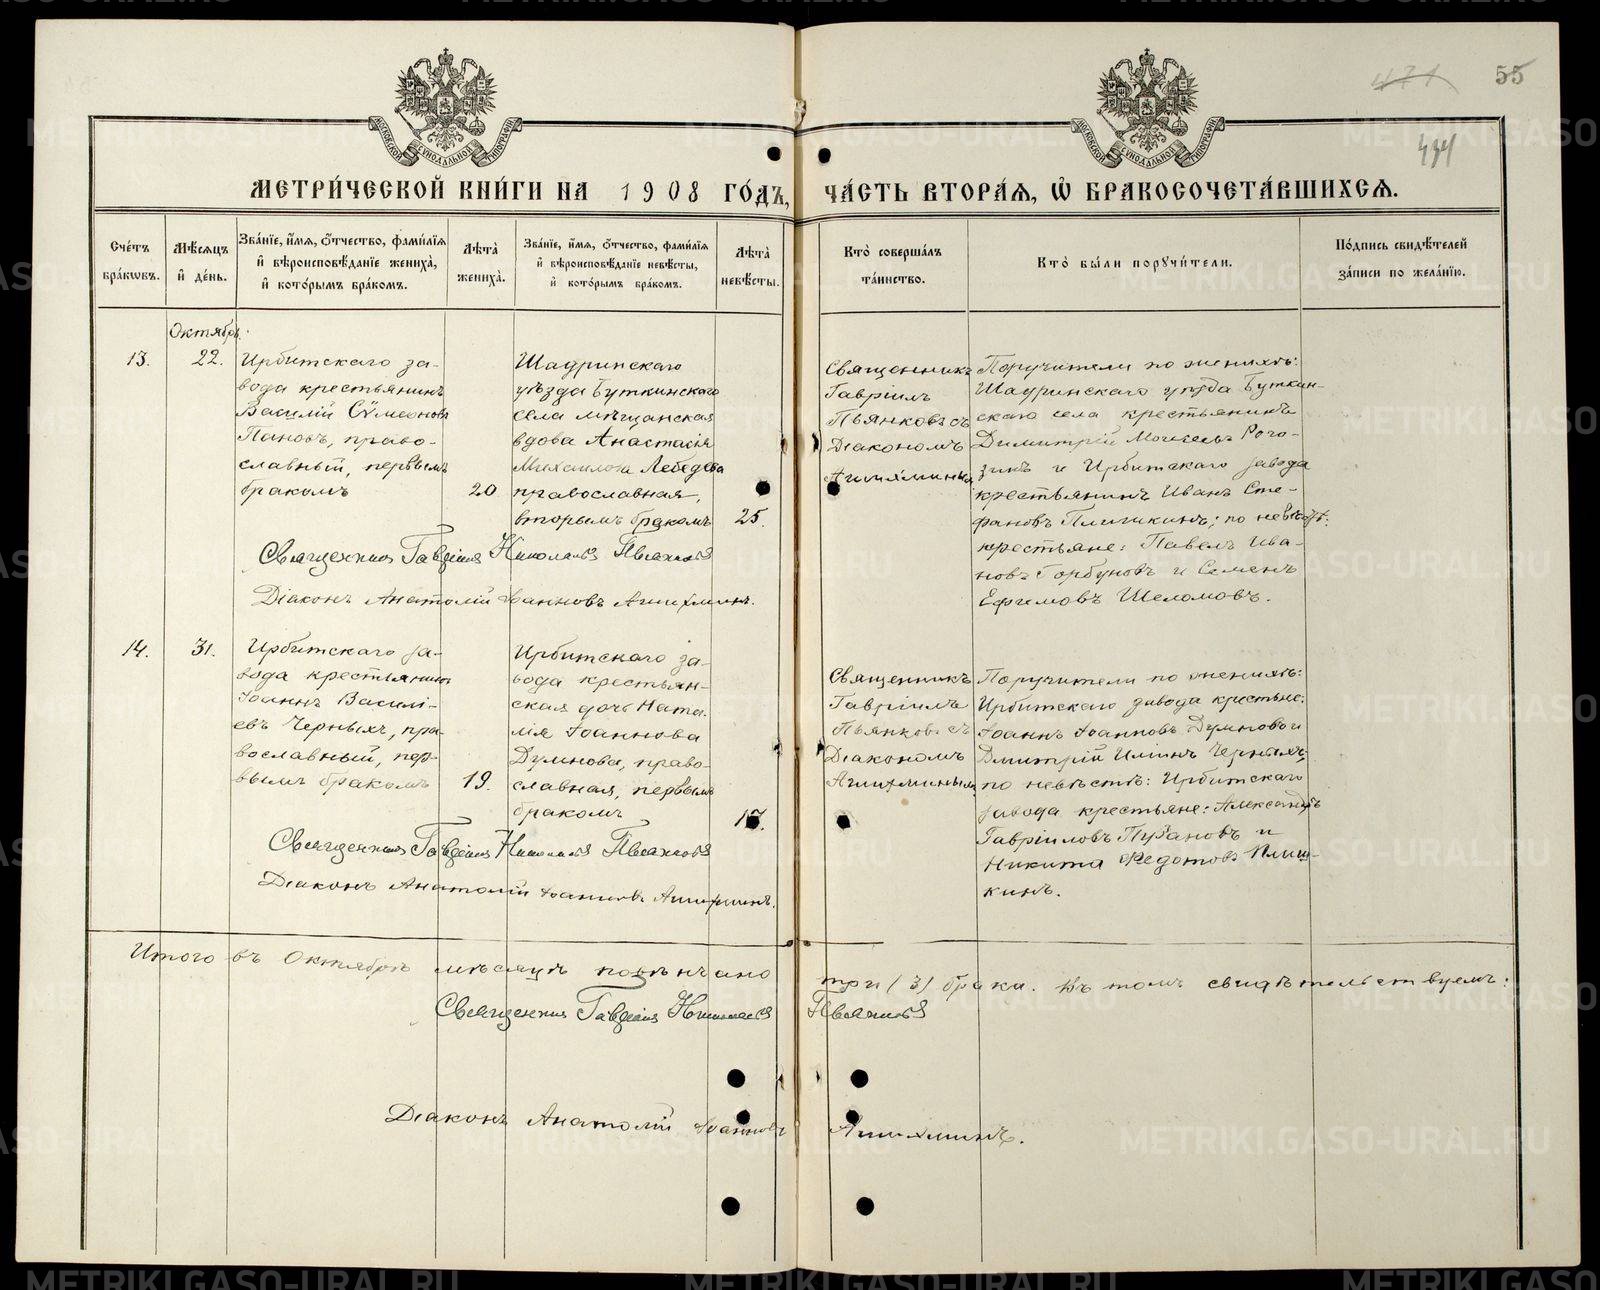 471 55
434
МОСКОВСКОЙ СѴНОДАЛЬНОЙ ТИПОГРАФІИ
МОСКОВСКОЙ СѴНОДАЛЬНОЙ ТИПОГРАФІИ
МЕТРИ́ЧЕСКОЙ КНИ́ГИ НА 1908 ГО́ДЪ, ЧА́СТЬ ВТОРА́Я, Ѡ҆ БРАКОСОЧЕТА́ВШИХСЯ.
Сче́тъ бра́кѡвъ.
Мѣ́сяцъ и҆ де́нь.
Зва́нїе, и҆́мя, ѻ҆́тчество, фами́лїя
и҆ вѣроисповѣ́данїе жениха̀,
и҆ кото́рымъ бра́комъ.
Лѣ́та жениха̀.
Зва́нїе, и҆́мя, ѻ҆́тчество, фами́лїя
и҆ вѣроисповѣ́данїе невѣ́сты,
и҆ кото́рымъ бра́комъ.
Лѣ́та невѣ́сты.
Кто̀ соверша́лъ
та́инство.
Кто̀ бы́ли порꙋчи́тели.
По́дпись свидѣ́телей
за́писи по жела́нїю.
Октябрь.
13. 22.
Ирбитскаго за-
вода крестьянинъ
Василій Сѵмеоновъ
Пановъ, право-
славный, первымъ
бракомъ
20
Шадринскаго
уѣзда Буткинскаго
села мѣщанская
вдова Анастасія
Михаилова Лебедева
православная,
вторымъ бракомъ
25.
Священникъ
Гавріилъ
Пьянковъ съ
Діакономъ
Агиихминымъ
Поручители по женихѣ:
Шадринскаго уѣзда Буткин-
скаго села крестьянинъ
Димитрій Моисеевъ Рого-
зинъ и Ирбитскаго завода
крестьянинъ Иванъ Сте-
фановъ Плишкинъ; по невѣстѣ:
крестьяне: Павелъ Ива-
новъ Горбуновъ и Семенъ
Ефимовъ Шеломовъ.
Священникъ Гавріилъ Николаевъ Пьянковъ
Діаконъ Анатолій Іоанновъ Агиихминъ.
14. 31.
Ирбитскаго за-
вода крестьянинъ
Іоаннъ Василі-
евъ Черныхъ, пра-
вославный, пер-
вымъ бракомъ
19.
Ирбитскаго за-
вода крестьян-
ская дочь Ната-
лія Іоаннова
Думнова, право-
славная, первымъ
бракомъ
17.
Священникъ
Гавріилъ
Пьянковъ съ
Діакономъ
Агиихминымъ
Поручители по женихѣ:
Ирбитскаго завода крестьяне:
Іоаннъ Іоанновъ Думновъ и
Дмитрій Илиинъ Черныхъ;
по невѣстѣ: Ирбитскаго
завода крестьяне: Александръ
Гавріиловъ Пузановъ и
Никита Федотовъ Плиш-
кинъ.
Священникъ Гавріилъ Николаевъ Пьянковъ
Діаконъ Анатолій Іоанновъ Агиихминъ.
Итого въ Октябрѣ мѣсяцѣ повѣнчано три (3) брака. Въ томъ свидѣтельствуемъ:
Священникъ Гавріилъ Николаевъ Пьянковъ
Діаконъ Анатолій Іоанновъ Агиихминъ.
METRIKI.GASO-URAL.RU